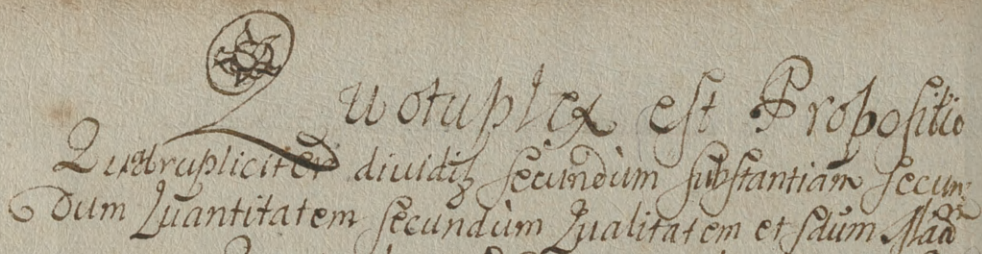 Quotuplex est Propositio
Quatrupliciter dividitʒ secundùm substantiam secun-
dum Quantitatem secundùm Qualitatem et sdùm